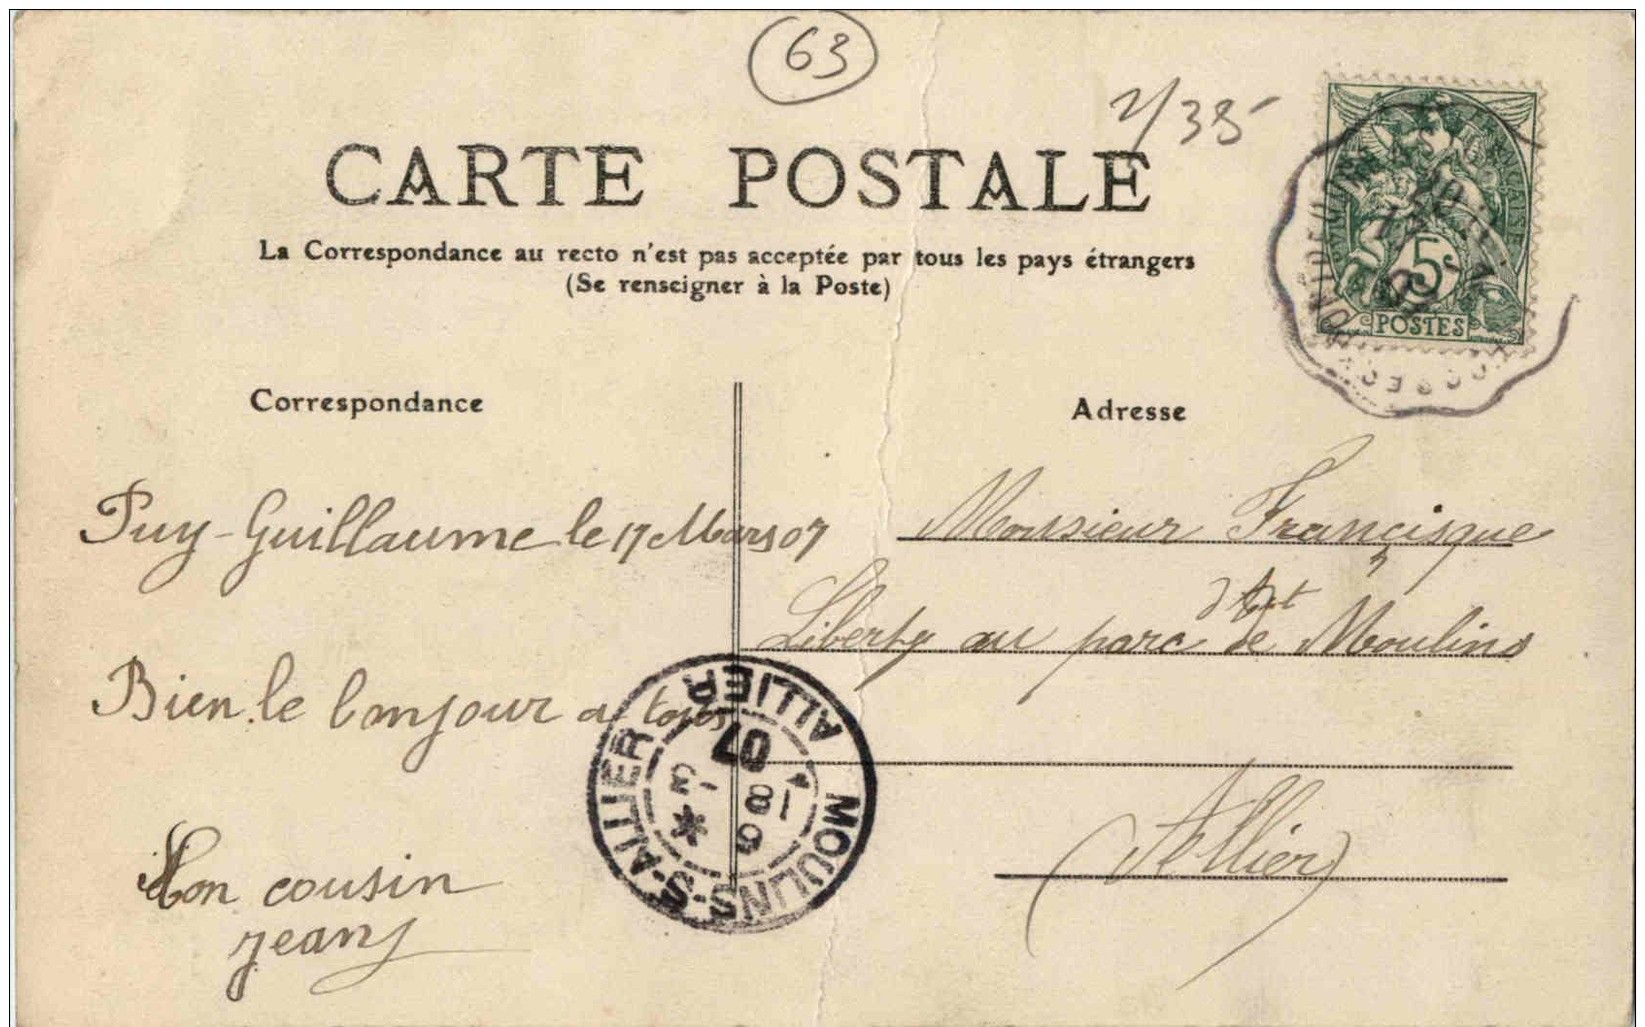 63
2/35
CARTE POSTALE
La Correspondance au recto n'est pas acceptée par tous les pays étrangers
(Se renseigner à la Poste)
RÉPUBLIQUE FRANÇAISE
5c
POSTES
Correspondance
Adresse
Puy-Guillaume le 17 Mars 07
Bien le bonjour a tous
Mon cousin
jean
Monsieur Francisque
Liberty au parc de Moulins
(Allier)
MOULINS-S-ALLIER
ALLIER
07